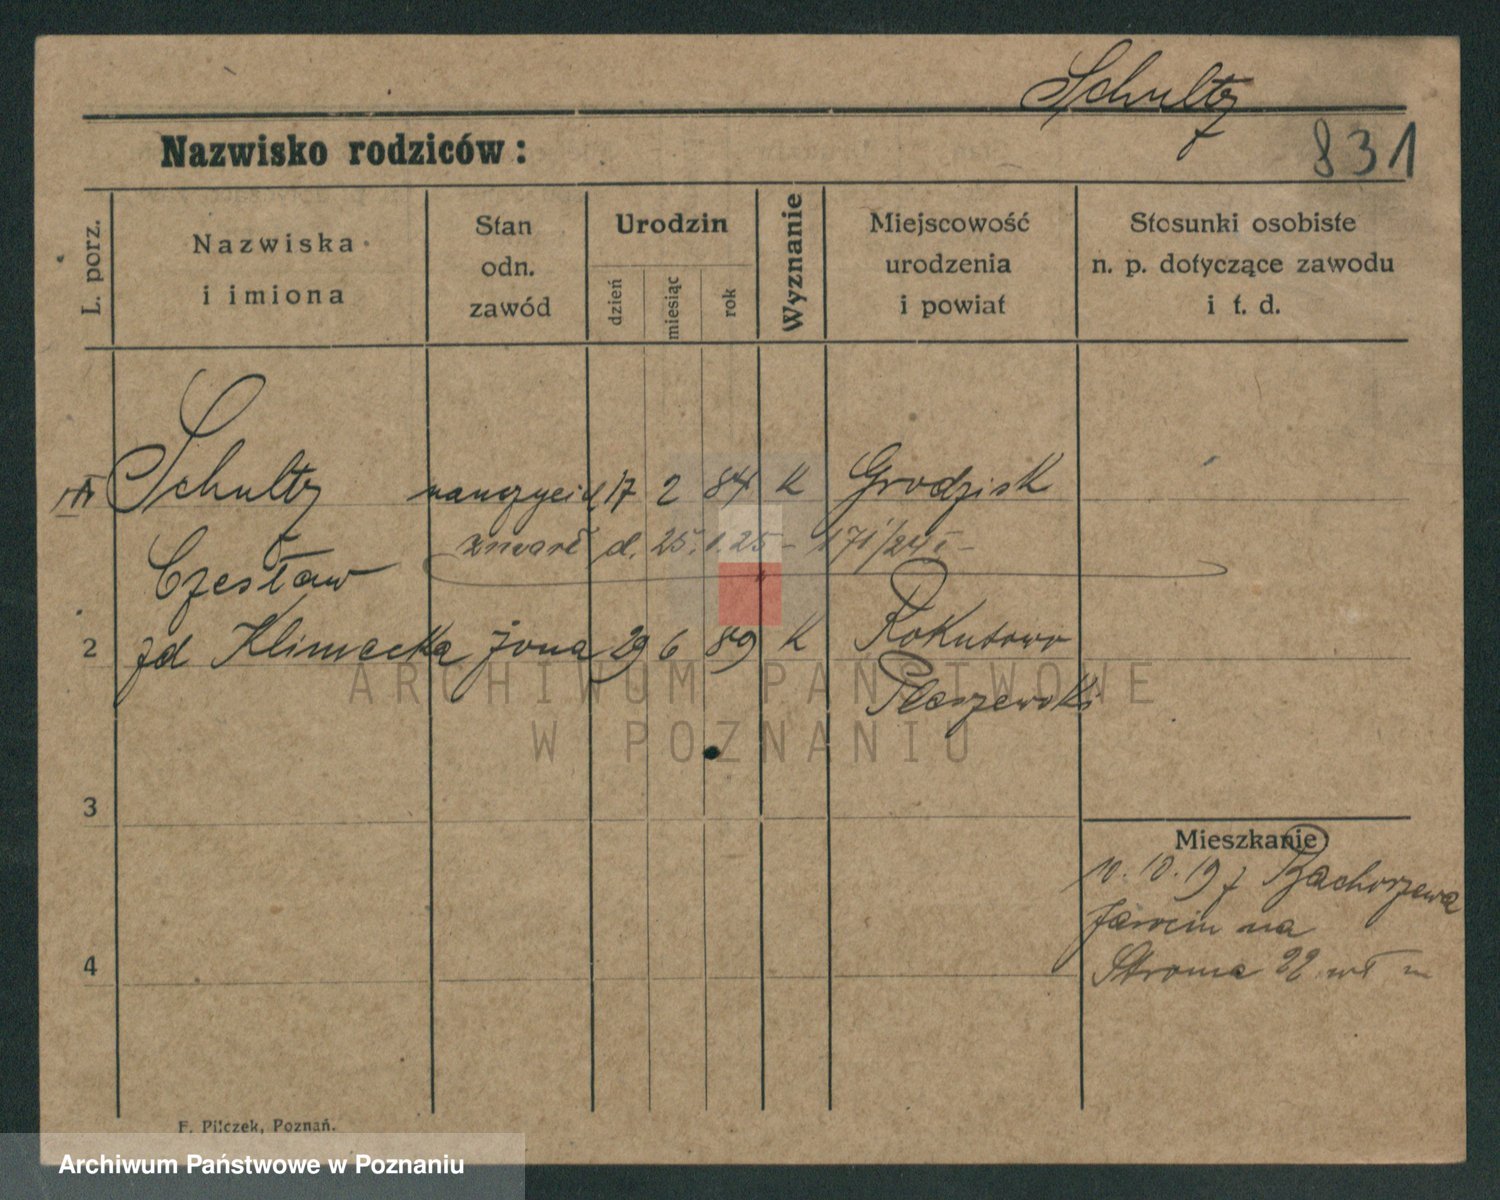 Schultz
Nazwisko rodziców:
831
L. porz.
Nazwiska
i imiona
Stan
odn.
zawód
Urodzin
dzień
miesiąc
rok
Wyznanie
Miejscowość
urodzenia
i powiat
Stosunki osobiste
n. p. dotyczące zawodu
i t. d.
Schultz nauczyciel 17 2 84 K Grodzisk
zmarł d. 25. 1. 25 - 171/24
Czesław
2 zd Klimecka żona 29 6 89 K Kokutowo
Pleszewski
3
Mieszkanie
10. 10. 19 z Bachorzewa
Jarocin na
4
Stroma 22
F. Pilczek, Poznań.
ARCHIWUM PAŃSTWOWE
W POZNANIU
Archiwum Państwowe w Poznaniu